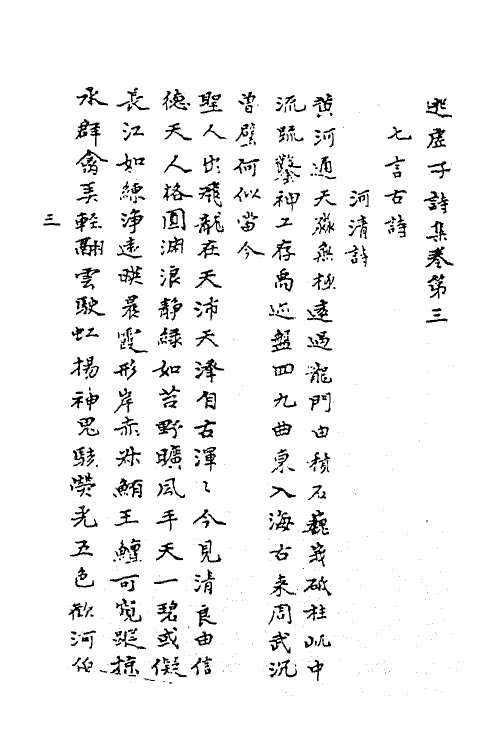 逃虛子詩集卷第三
七言古詩
河清詩
黃河通天渺無極遠過龍門由積石巍峩砥柱屹中
流疏鑿神工存禹迹盤四九曲東入海古来周武沉
曽璧何似當今
聖人出飛龍在天沛天澤自古渾〻今見清良由信
德天人格圓淵浪静緑如苔野曠風平天一碧或儗
長江如練浄遠暎晨霞形岸赤冰鮪王鱣可寬蹤掠
水群禽羙輕翮雲駛虹揚神思駭熒光五色歓河伯
三